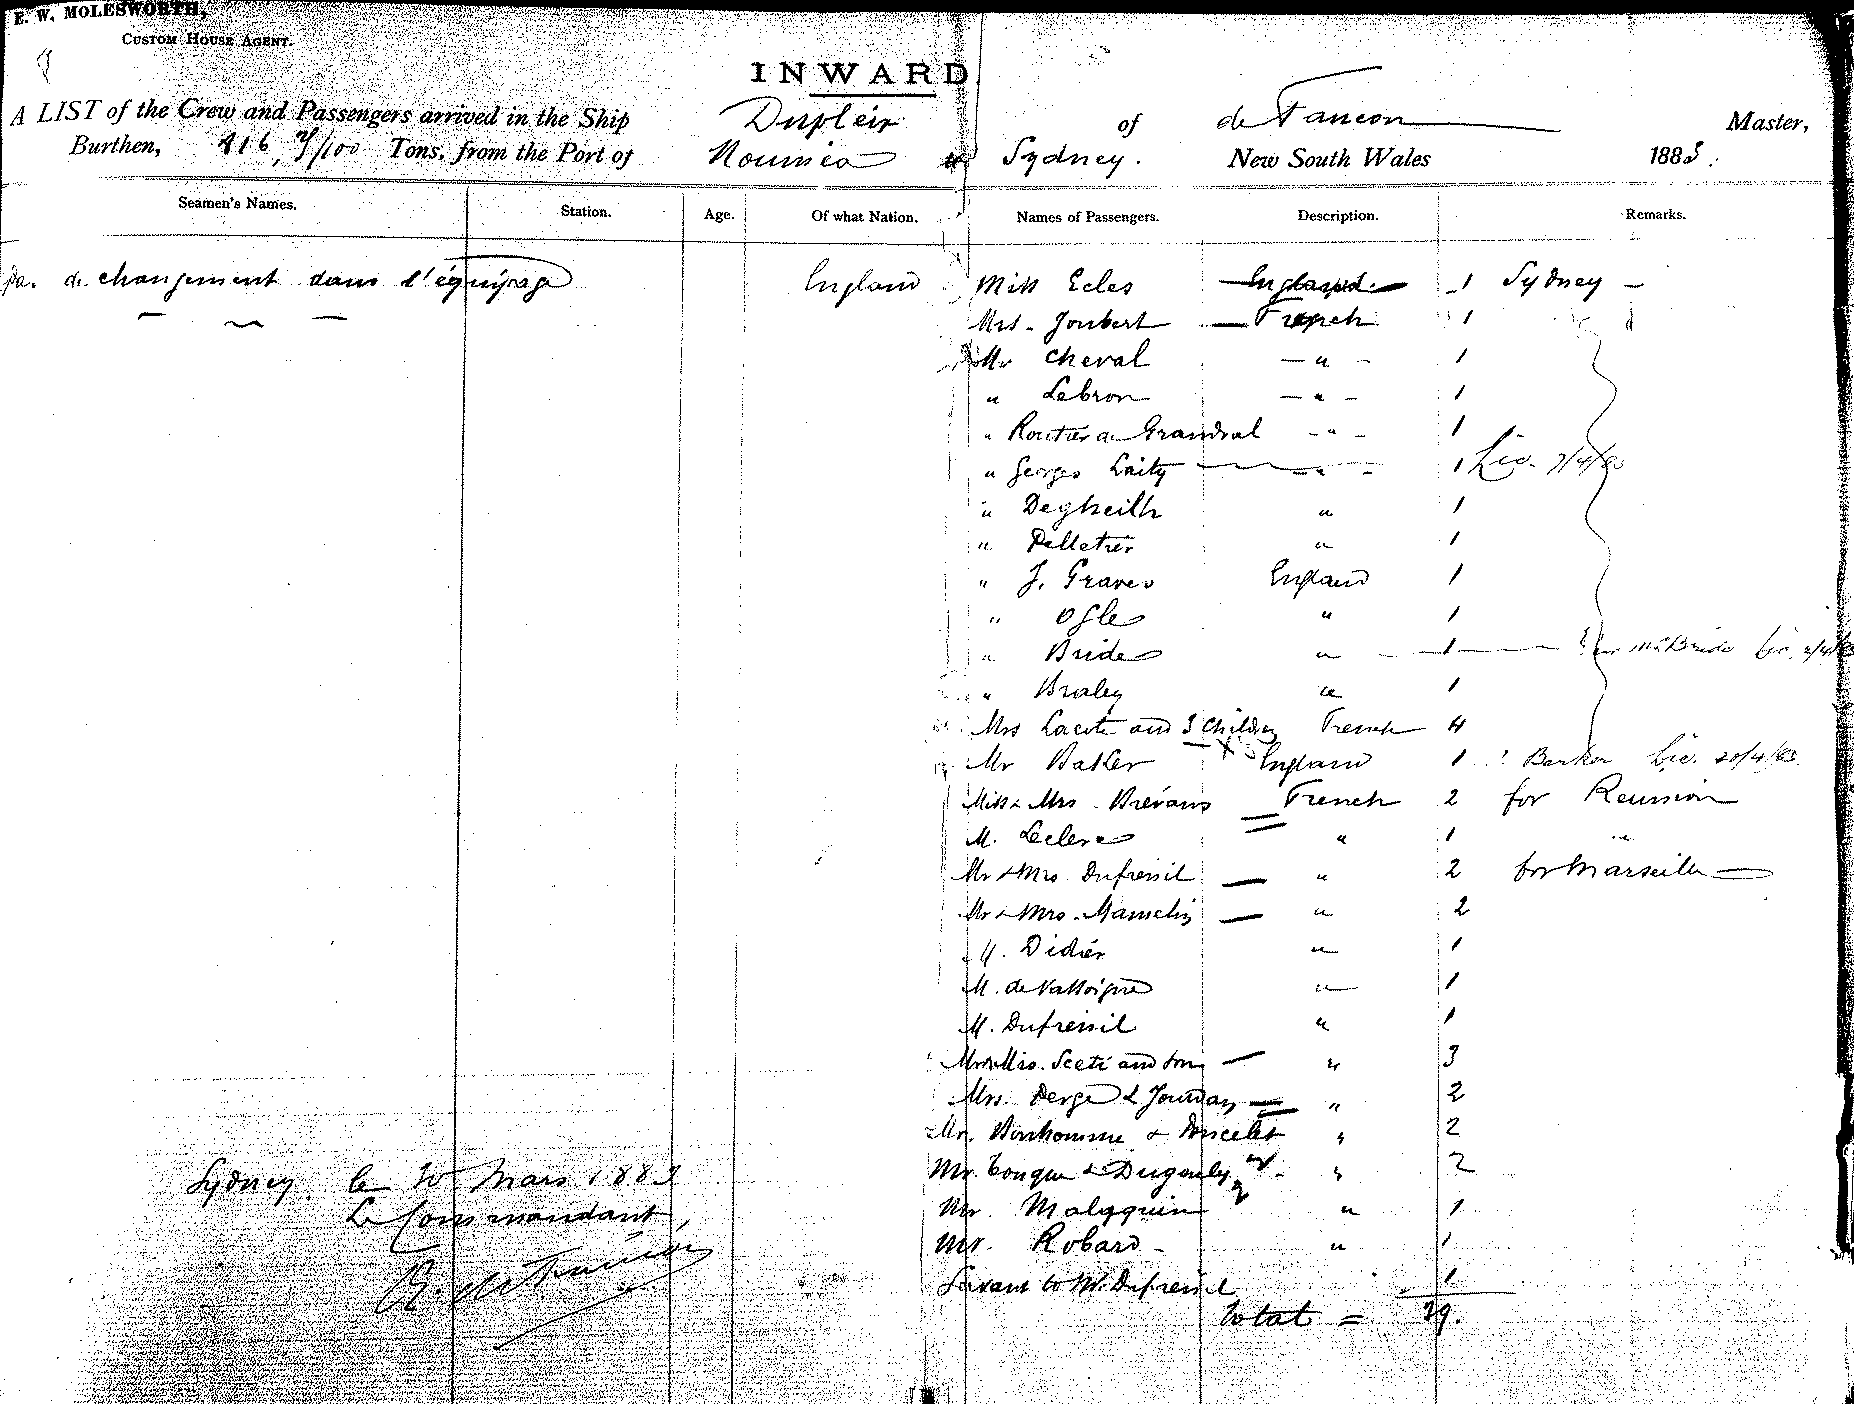 E. W. MOLESWORTH,
CUSTOM HOUSE AGENT.
INWARD
A LIST of the Crew and Passengers arrived in the Ship Dupleix of de Fancon Master,
Burthen, 416 7/100 Tons, from the Port of Noumea Sydney. New South Wales 1883.
Seamen's Names. Station. Age. Of what Nation. Names of Passengers. Description. Remarks.
Pas de changement dans l'équipage England Miss Ecles England 1 Sydney
Mrs. Joubert French 1
Mr Cheval " 1
" Lebron " 1
" Routier a Grandval " 1
" Georges Laity " 1 Lic. 7/4/83
" Degheilh " 1
" Pelletier " 1
" J. Graves England 1
" Ogle " 1
" Bride " 1 ? McBride Lic.
" Braley " 1
Mrs Lacote and 3 Children French 4
Mr Baker England 1 ? Barker Lic. 20/4/83
Miss & Mrs Brévans French 2 for Reunion
M. Leclerc " 1 "
Mr & Mrs Dufresnil " 2 for Marseille
Mr & Mrs. Mamelin " 2
M. Didier " 1
M. de Vassoigne " 1
M. Dufresnil " 1
Mr & Mrs. Sceti and son " 3
Mrs. Derge & Jourdan " 2
Mr. Bonhomme & Poncelet " 2
Sydney le 30 Mars 1883 Mr. Conque & Dugouly " 2
Le Commandant, Mr. Malgquin " 1
Mr. Robard " 1
Servant to M. Dufresnil 1
total = 39.